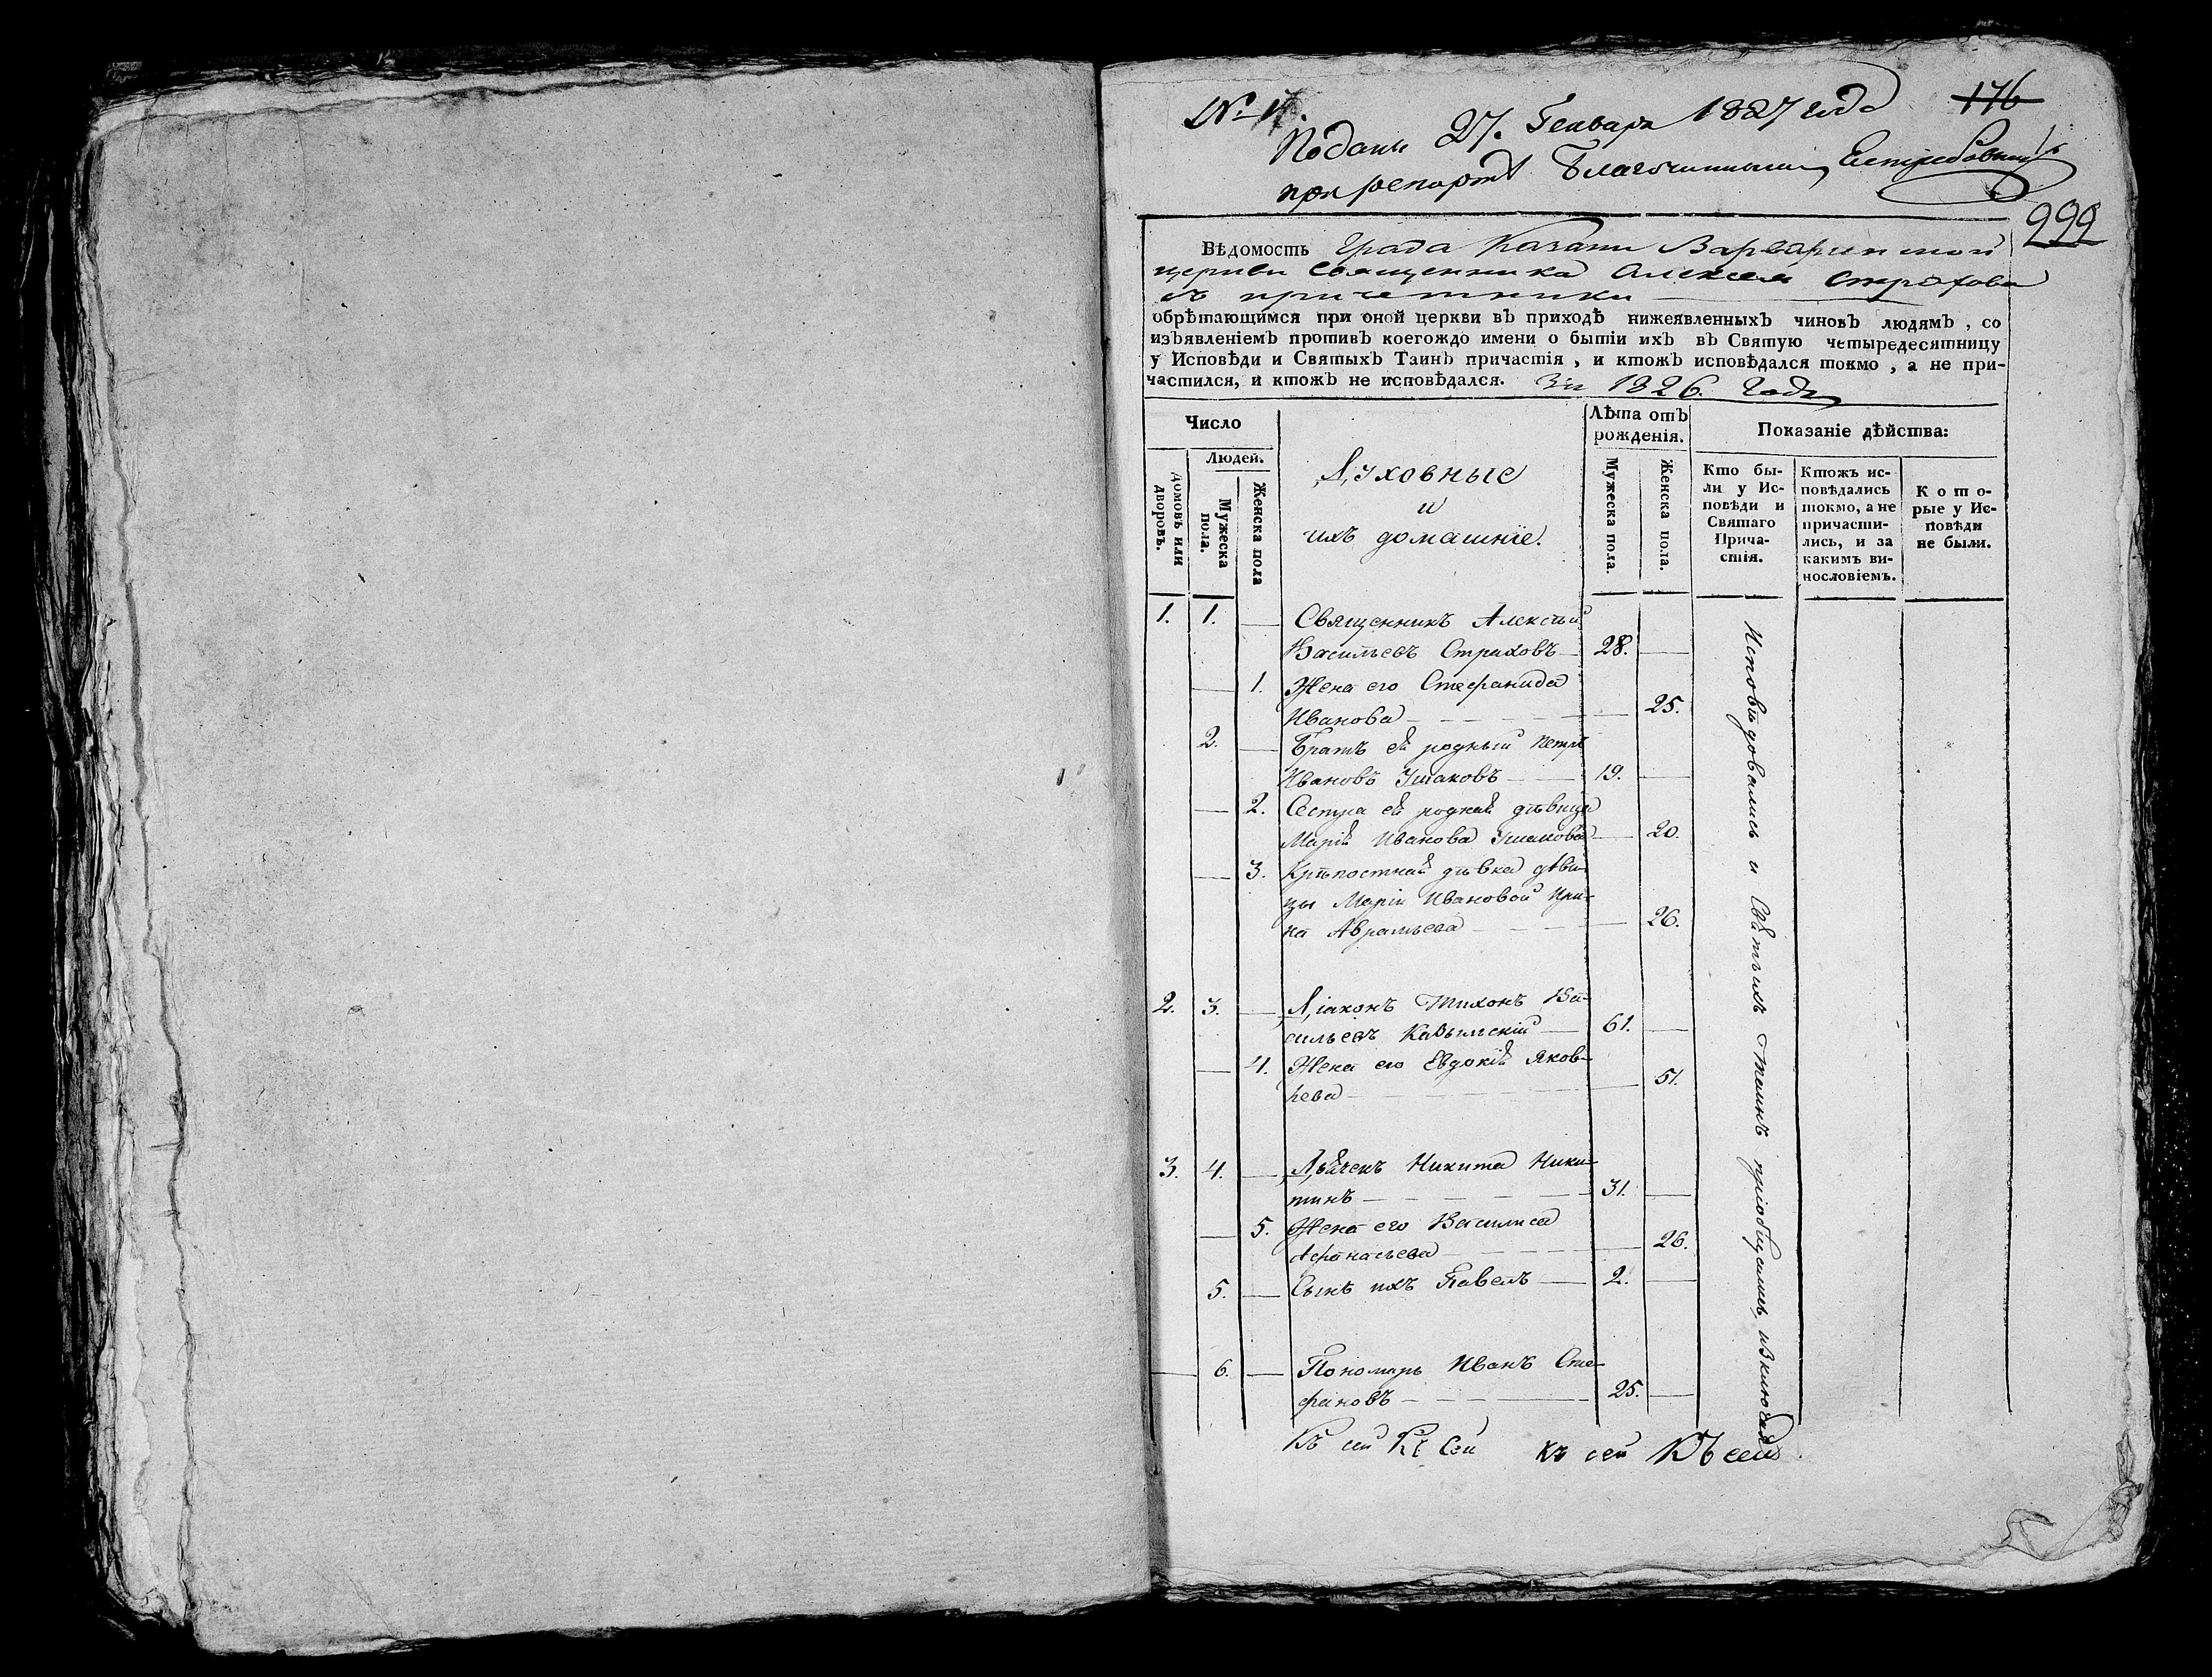 176
Поданы 27. Генваря 1827 года
при репорте Благочинным
999
Вѣдомость Града Казани Варваринской
церкви Священника Алексея Страхова
съ причетники
обрѣтающимся при оной церкви въ приходѣ нижеявленныхъ чиновъ людямъ, со
изъявленіемъ противъ коегождо имени о бытіи ихъ въ Святую четыредесятницу
у Исповѣди и Святыхъ Таинъ причастія, и ктожъ исповѣдался токмо, а не при-
частился, и ктожъ не исповѣдался. За 1826. Годъ
Число
Людей.
домовъ или дворовъ.
Мужеска пола.
Женска пола
Духовные
и
ихъ домашніе.
Лѣта отъ
рожденія.
Мужеска пола.
Женска пола.
Показаніе дѣйства:
Кто бы-
ли у Ис-
повѣди и
Святаго
Прича-
стія.
Ктожъ ис-
повѣдались
токмо, а не
причасти-
лись, и за
какимъ ви-
нословіемъ.
Кото-
рые у Ис-
повѣди
не были.
1. 1. — Священникъ Алексѣй
Васильевъ Страховъ — 28. —
— 1. Жена его Стефанида
Иванова — 25.
2. — Братъ ей родный Петръ
Ивановъ Ушаковъ — 19. —
— 2. Сестра ей родная дѣвица
Марія Иванова Ушакова — 20.
— 3. Крѣпостная дѣвка дѣви-
цы Маріи Ивановой Ири-
на Аврамьева — 26.
2. 3. — Діаконъ Тихонъ Ва-
сильевъ — 61. —
— 4. Жена его Евдокія Яков-
лева — 51.
3. 4. — Дьячекъ Никита Ники-
тинъ — 31. —
— 5. Жена его Василиса
Афонасьева — 26.
5. — Сынъ ихъ Павелъ — 2. —
— 6. — Пономарь Иванъ Сте-
фановъ — 25. —
Исповѣдовались и Святыхъ Таинъ пріобщались
Къ сей Къ Сей къ сей Къ сей